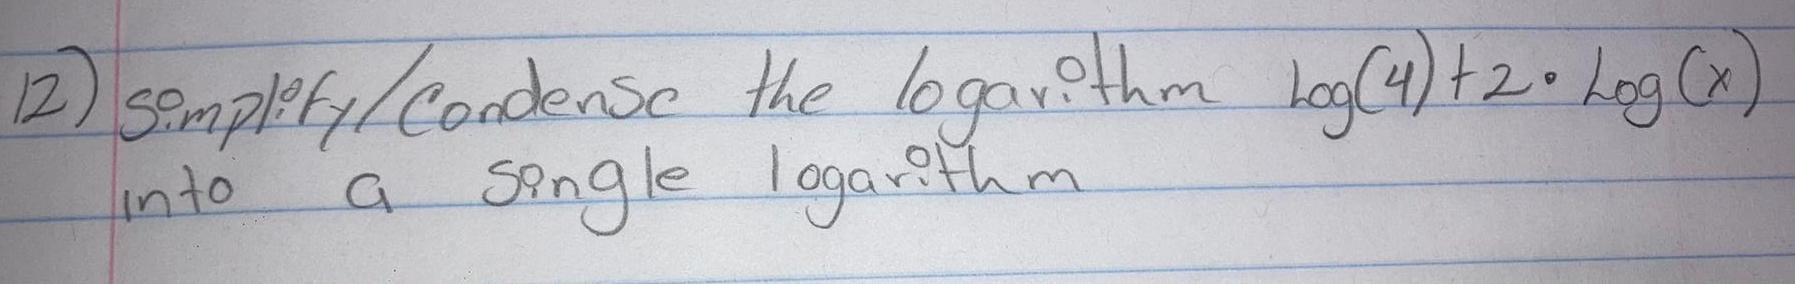 12) simplify/condense the logarithm log(4)+2·Log(x)
into a single logarithm